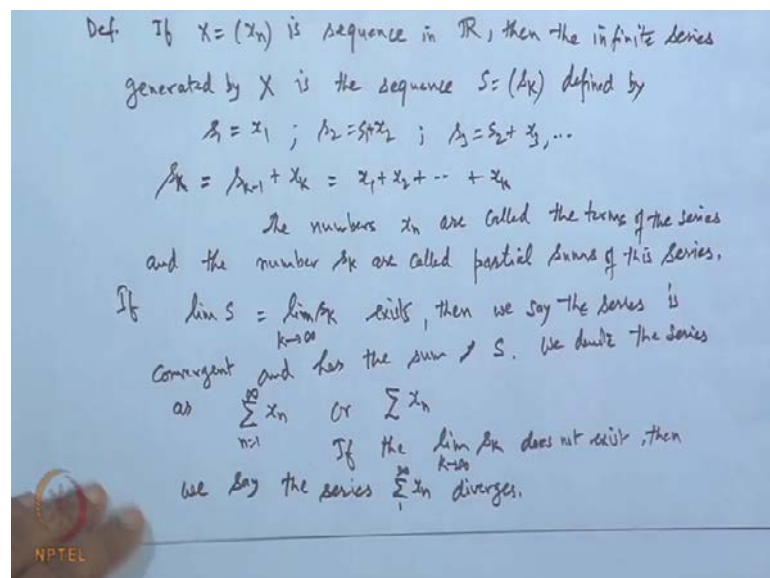 Def. If X = (xn) is sequence in ℝ, then the infinite series
generated by X is the sequence S = (sk) defined by
s1 = x1 ; s2 = s1+x2 ; s3 = s2 + x3, ...
sk = sk-1 + xk = x1 + x2 + -- + xk
The numbers xn are called the terms of the series
and the number sk are called partial sums of this series.
If lim S = lim sk exists, then we say the series is
k→∞
convergent and has the sum S. We denote the series
as ∞∑n=1 xn or ∑ xn
If the lim sk does not exist, then
k→∞
we say the series ∞∑1 xn diverges.
NPTEL